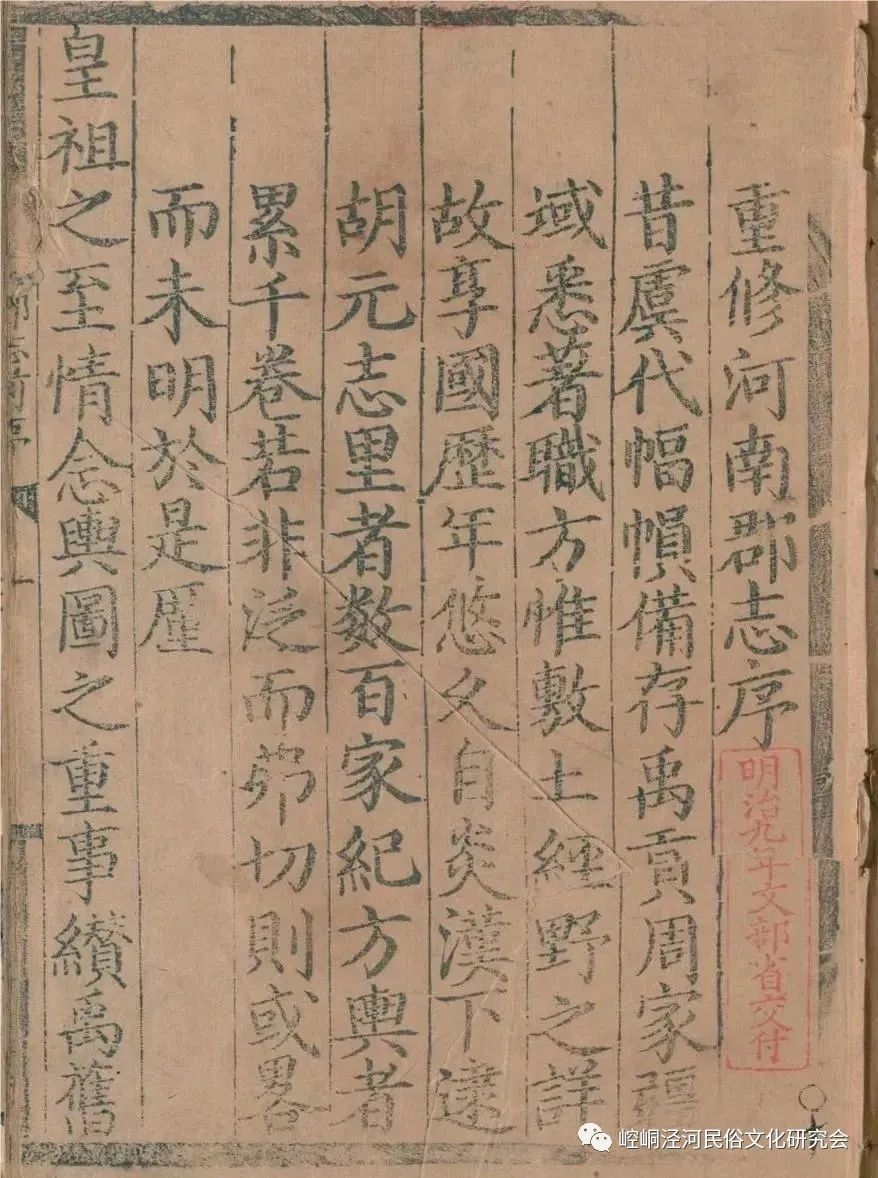 重修河南郡志序
昔虞代幅幀備存禹貢周家疆
域悉著職方惟敷土經野之詳
故享國歷年悠久自炎漢下逮
胡元志里者数百家紀方輿者
累千卷若非泛而茆切則或畧
而未明於是厪
皇祖之至情念輿圖之重事纘禹舊
明治九年文部省交付
崆峒泾河民俗文化研究会